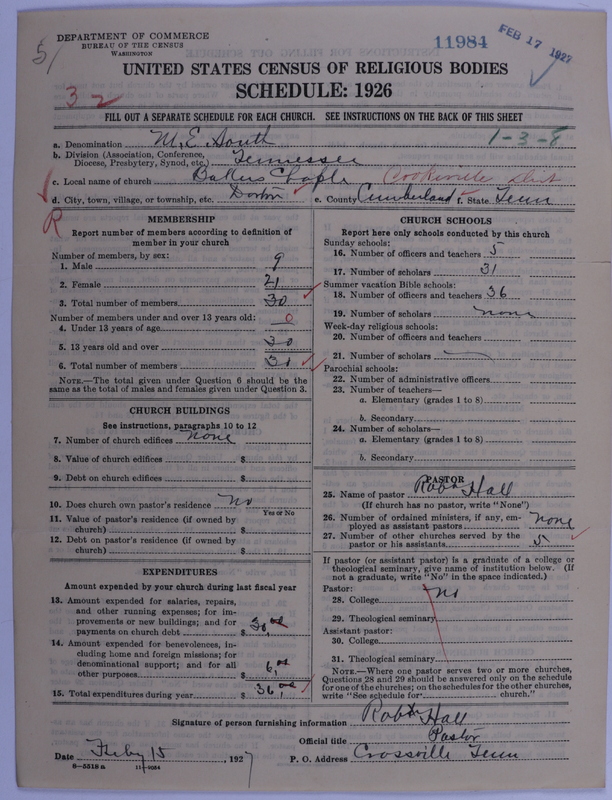 DEPARTMENT OF COMMERCE
BUREAU OF THE CENSUS
WASHINGTON
11984
FEB 17 1927
5/
UNITED STATES CENSUS OF RELIGIOUS BODIES
SCHEDULE: 1926
3 2
FILL OUT A SEPARATE SCHEDULE FOR EACH CHURCH. SEE INSTRUCTIONS ON THE BACK OF THIS SHEET
1-3-8
a. Denomination M. E. South
b. Division (Association, Conference, Diocese, Presbytery, Synod, etc.) Tennessee
c. Local name of church Bakers Chaple Cookeville Dist
d. City, town, village, or township, etc. Dorton e. County Cumberland f. State Tenn
R
MEMBERSHIP
Report number of members according to definition of
member in your church
Number of members, by sex:
1. Male 9
2. Female 21
3. Total number of members 30
Number of members under and over 13 years old: 0
4. Under 13 years of age
5. 13 years old and over 30
6. Total number of members 30
NOTE.—The total given under Question 6 should be the
same as the total of males and females given under Question 3.
CHURCH BUILDINGS
See instructions, paragraphs 10 to 12
7. Number of church edifices none
8. Value of church edifices $
9. Debt on church edifices $
10. Does church own pastor's residence no
Yes or No
11. Value of pastor's residence (if owned by
church) $
12. Debt on pastor's residence (if owned by
church) $
EXPENDITURES
Amount expended by your church during last fiscal year
13. Amount expended for salaries, repairs,
and other running expenses; for im-
provements or new buildings; and for
payments on church debt $ 30,00
14. Amount expended for benevolences, in-
cluding home and foreign missions; for
denominational support; and for all
other purposes $ 6,00
15. Total expenditures during year $ 36,00
CHURCH SCHOOLS
Report here only schools conducted by this church
Sunday schools:
16. Number of officers and teachers 5
17. Number of scholars 31
Summer vacation Bible schools:
18. Number of officers and teachers 36
19. Number of scholars none
Week-day religious schools:
20. Number of officers and teachers
21. Number of scholars
Parochial schools:
22. Number of administrative officers
23. Number of teachers—
a. Elementary (grades 1 to 8)
b. Secondary
24. Number of scholars—
a. Elementary (grades 1 to 8)
b. Secondary
PASTOR
25. Name of pastor Robt Hall
(If church has no pastor, write "None")
26. Number of ordained ministers, if any, em-
ployed as assistant pastors none
27. Number of other churches served by the
pastor or his assistants 5
If pastor (or assistant pastor) is a graduate of a college or
theological seminary, give name of institution below. (If
not a graduate, write "No" in the space indicated.)
Pastor:
28. College no
29. Theological seminary
Assistant pastor:
30. College
31. Theological seminary
NOTE.—Where one pastor serves two or more churches,
Questions 28 and 29 should be answered only on the schedule
for one of the churches; on the schedules for the other churches,
write "See schedule for church."
Signature of person furnishing information Robt Hall
Official title Pastor
Date Feby 15, 1927 P. O. Address Crossville Tenn
8—5518 a 11—9084